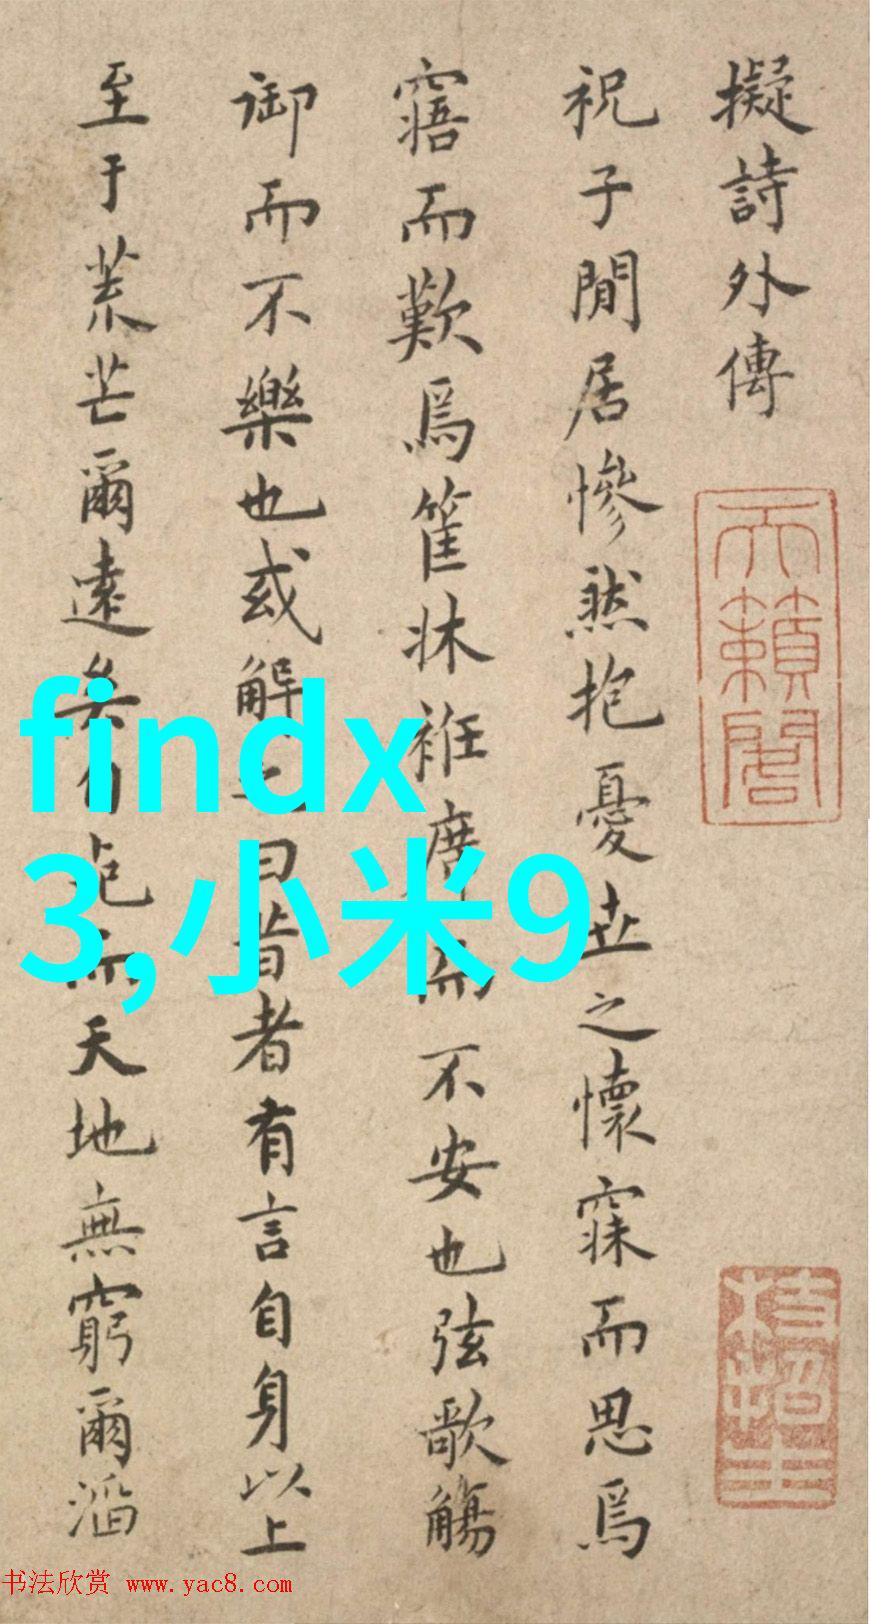 擬詩外傳
祝子閒居慘然抱憂世之懷寐而思焉
寤而歎焉筐牀衽席而不安也弦歌觴
御而不樂也或解之曰昔者有言自身以上
至于荒芒爾遠矣自此而天地無窮爾滔
天籟閣
findx
3,小米9
书法欣赏 www.yac8.com